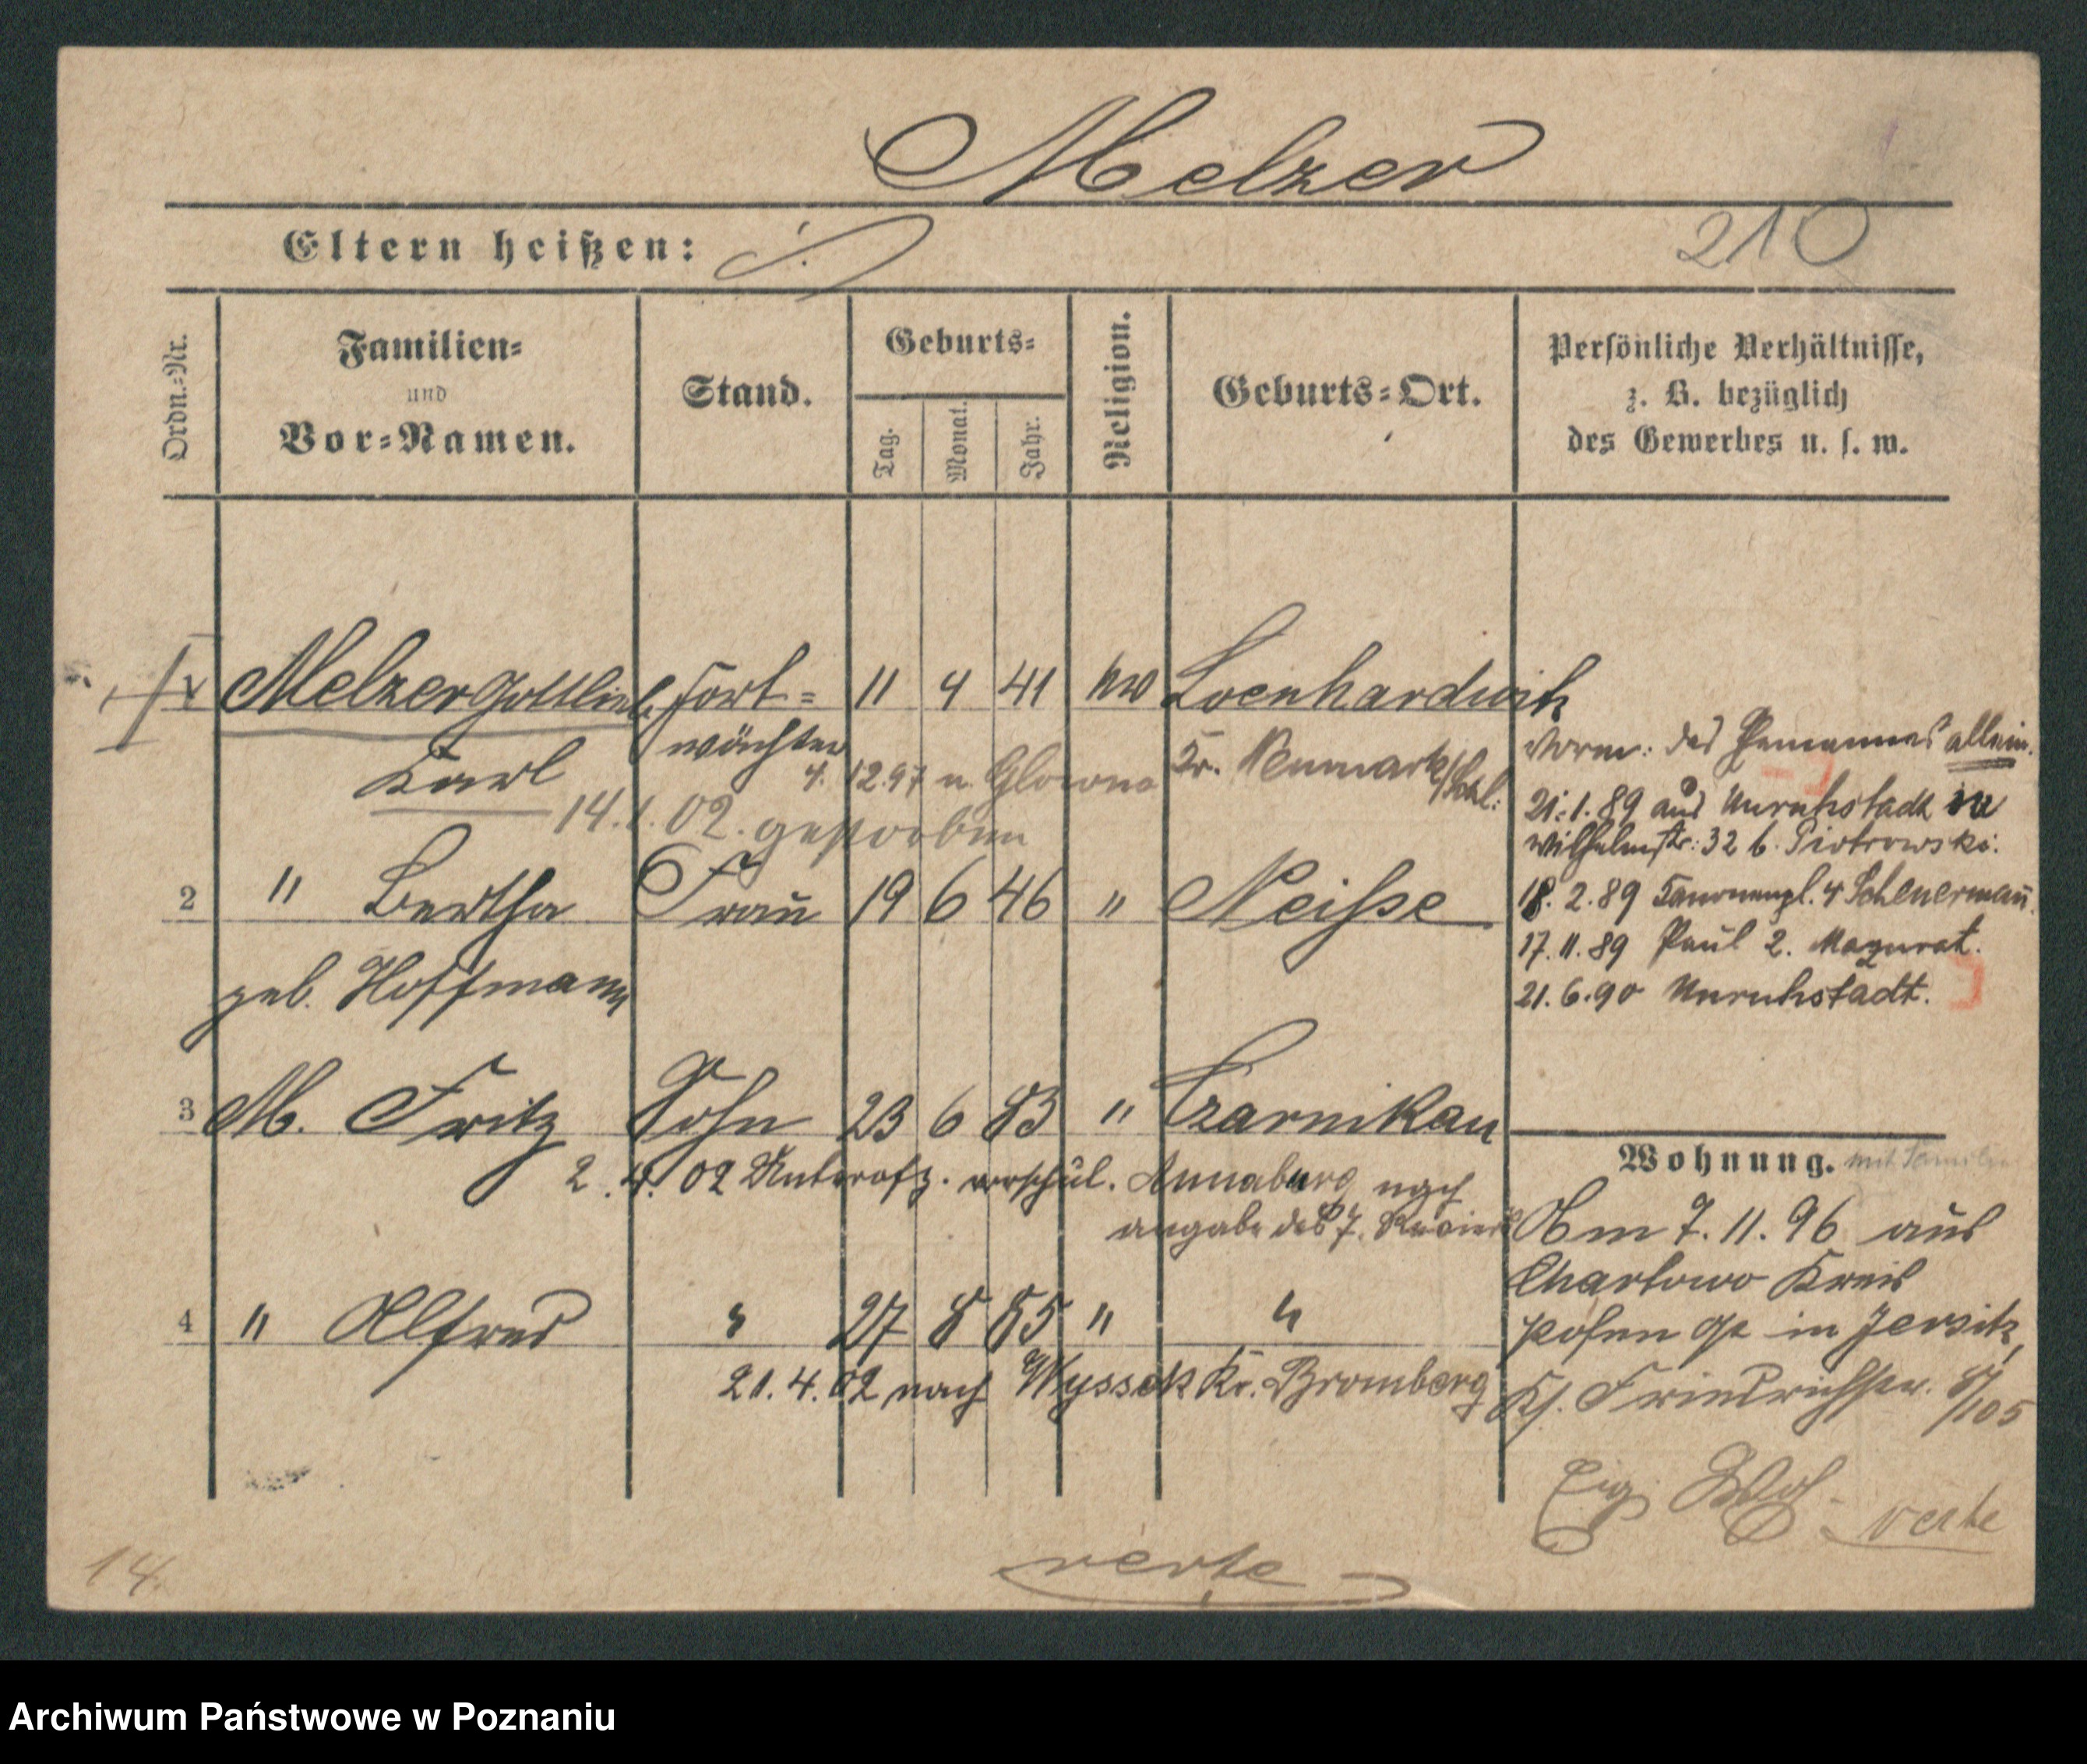 Melzer
Eltern heißen:
210
Ordn.-Nr.
Familien-
und
Vor-Namen.
Stand.
Geburts-
Tag.
Monat.
Jahr.
Religion.
Geburts-Ort.
Persönliche Verhältnisse,
z. B. bezüglich
des Gewerbes u. s. w.
Melzer Gottlieb Fort- 11 4 41 Loenhardwitz
Karl wächter Kr. Neumarkt/Schl:
4. 12.97 n. Glowno
14.1.02. gestorben
2 " Bertha Frau 19 6 46 " Neisse
geb. Hoffmann
3 M. Fritz Sohn 23 6 83 " Czarnikau
2.4.02 Unteroffz. vorschul. Annaburg nach
angabe des 7. Reviers
4 " Alfred " 27 8 85 " "
21.4.02 nach Wyssek Kr. Bromberg
Verm: des Ehemannes allein.
21.1.89 aus Unruhstadt in
Wilhelmstr: 32 b. Piotrowski.
18.2.89 Kanonenpl. 4 Scheuermañ.
17.11.89 Paul 2. Mazurat.
21.6.90 Unruhstadt.
Wohnung. mit Familie
Am 7.11.96 aus
Chartowo Kreis
Posen in Jersitz,
Friedrichstr. /105
verte
verte
14.
Archiwum Państwowe w Poznaniu